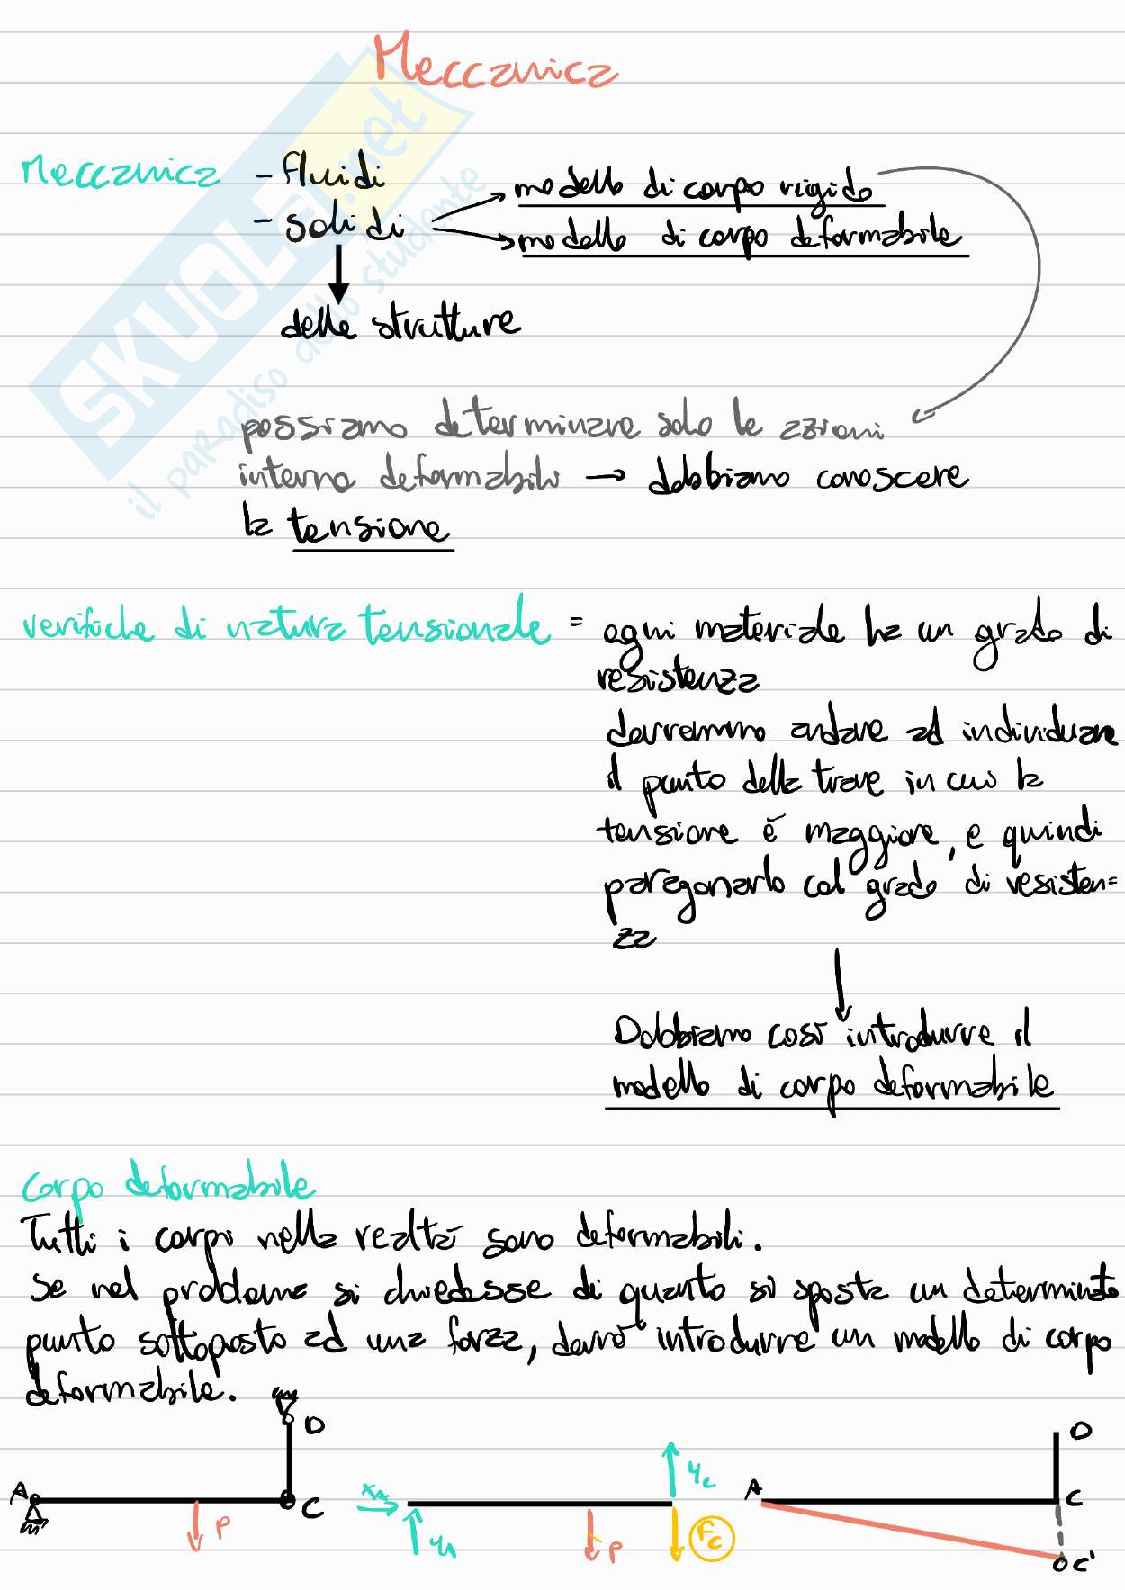 Meccanica
Meccanica - fluidi
- solidi
modello di corpo rigido
modello di corpo deformabile
delle strutture
possiamo determinare solo le azioni
interna deformabili → dobbiamo conoscere
la tensione
verifiche di natura tensionale = ogni materiale ha un grado di
resistenza
dovremmo andare ad individuare
il punto della trave in cui la
tensione è maggiore, e quindi
paragonarlo col grado di resisten=
za
Dobbiamo così introdurre il
modello di corpo deformabile
Corpo deformabile
Tutti i corpi nella realtà sono deformabili.
Se nel problema si chiedesse di quanto si sposta un determinato
punto sottoposto ad una forza, dovrò introdurre un modello di corpo
deformabile.
A D C P
XA YA P YC FC
A D C C'
SKUOLA.net
il paradiso dello studente